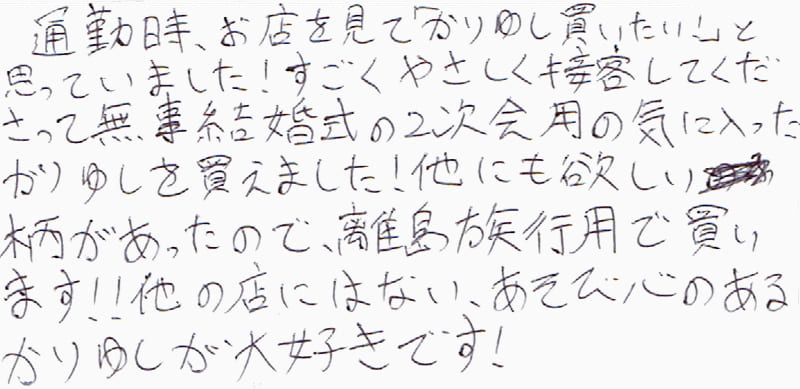 通勤時、お店を見て「かりゆし買いたい!」と
思っていました!すごくやさしく接客してくだ
さって無事結婚式の2次会用の気に入った
かりゆしを買えました!他にも欲しい
柄があったので、離島旅行用で買い
ます!!他の店にはない、あそび心のある
かりゆしが大好きです!